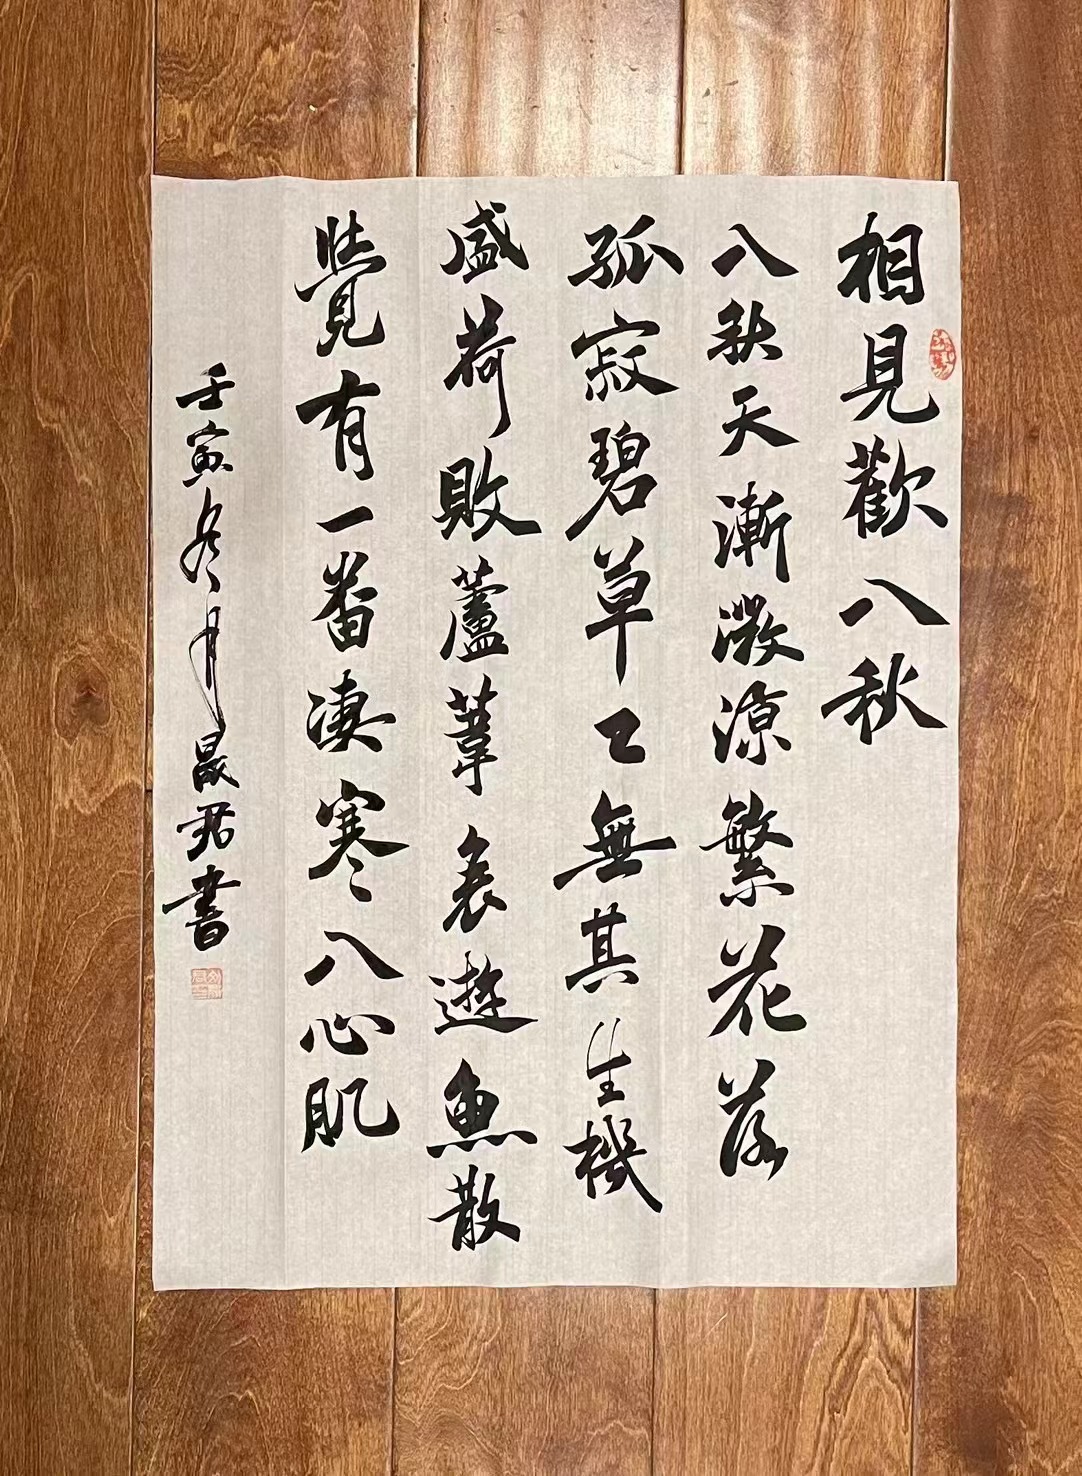 相見歡入秋
入秋天漸微涼繁花落
孤寂碧草已無其生機
盛荷敗蘆葦衰遊魚散
覺有一番凄寒入心肌
壬寅冬月晟君書